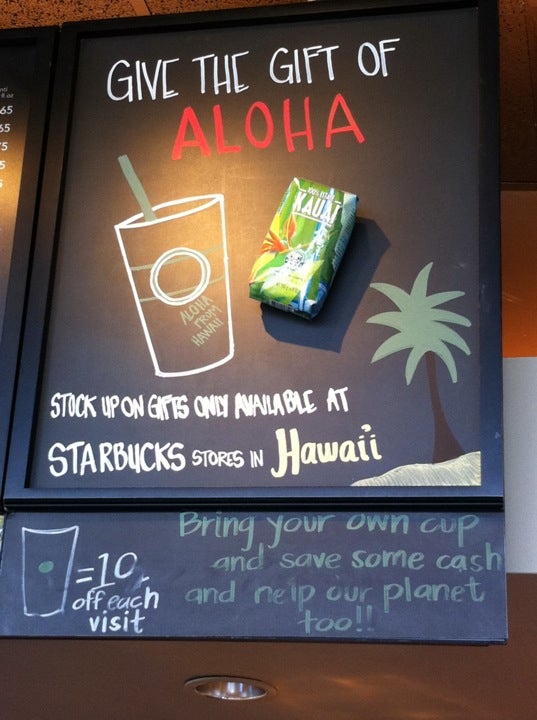 GIVE THE GIFT OF
ALOHA
KAUAI
ALOHA
FROM
HAWAII
STOCK UP ON GIFTS ONLY AVAILABLE AT
STARBUCKS STORES IN Hawaii
Bring your own cup
and save some cash
and help our planet
too!!
=10
off each
visit
65
65